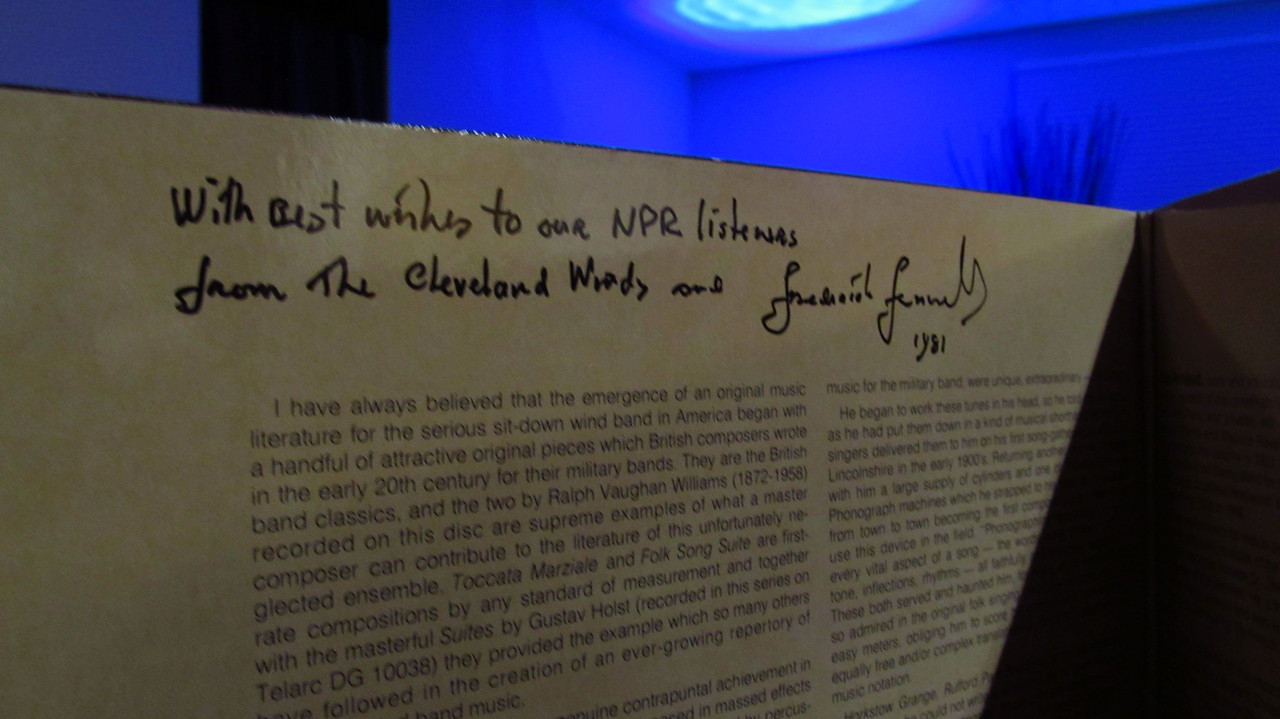 With Best wishes to our NPR listeners
from The Cleveland Winds and Frederick Fennell
1981
I have always believed that the emergence of an original music
literature for the serious sit-down wind band in America began with
a handful of attractive original pieces which British composers wrote
in the early 20th century for their military bands. They are the British
band classics, and the two by Ralph Vaughan Williams (1872-1958)
recorded on this disc are supreme examples of what a master
composer can contribute to the literature of this unfortunately ne-
glected ensemble. Toccata Marziale and Folk Song Suite are first-
rate compositions by any standard of measurement and together
with the masterful Suites by Gustav Holst (recorded in this series on
Telarc DG 10038) they provided the example which so many others
have followed in the creation of an ever-growing repertory of
band music.
genuine contrapuntal achievement in
in massed effects
percus-
music for the military band, were unique, extraordinary
He began to work these tunes in his head, so he
as he had put them down in a kind of musical
singers delivered them to him on his first
Lincolnshire in the early 1900's. Returning
with him a large supply of cylinders and one
Phonograph machines which he strapped to
from town to town becoming the first
use this device in the field. "Phonograph
every vital aspect of a song — the
tone, inflections, rhythms — all faithfully
These both served and haunted him,
so admired in the original folk singing
easy meters, obliging him to score
equally free and/or complex
music notation.
Horkstow Grange, Rufford
could not